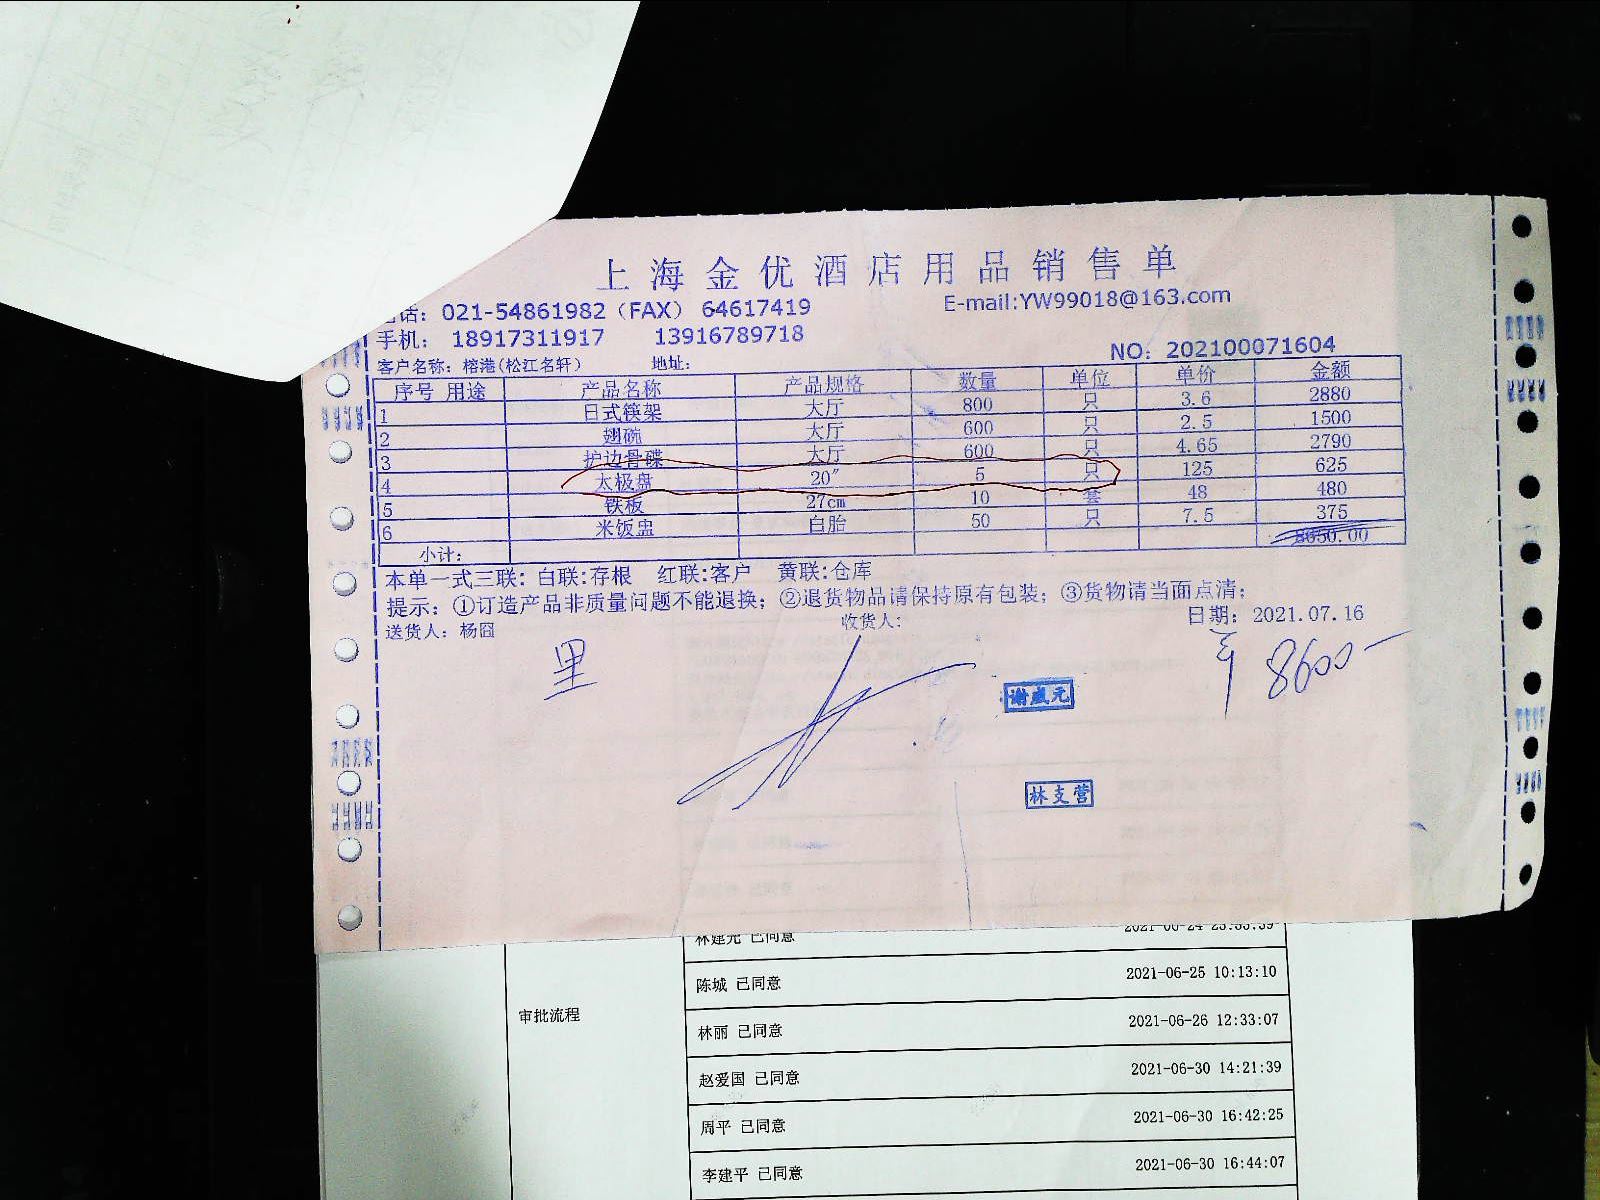 上海金优酒店用品销售单
话：021-54861982（FAX） 64617419 E-mail:YW99018@163.com
手机： 18917311917 13916789718
NO：202100071604
客户名称：榕港(松江名轩) 地址：
序号 用途 产品名称 产品规格 数量 单位 单价 金额
1 日式筷架 大厅 800 只 3.6 2880
2 翅碗 大厅 600 只 2.5 1500
3 护边骨碟 大厅 600 只 4.65 2790
4 太极盘 20" 5 只 125 625
5 铁板 27cm 10 套 48 480
6 米饭盅 白胎 50 只 7.5 375
小计： 8650.00
本单一式三联：白联:存根 红联:客户 黄联:仓库
提示：①订造产品非质量问题不能退换；②退货物品请保持原有包装；③货物请当面点清；
送货人：杨囧 收货人： 日期：2021.07.16
里 8600-
谢盛元
林支营
林建光 已同意 2021-06-24 23:33:39
陈城 已同意 2021-06-25 10:13:10
审批流程
林丽 已同意 2021-06-26 12:33:07
赵爱国 已同意 2021-06-30 14:21:39
周平 已同意 2021-06-30 16:42:25
李建平 已同意 2021-06-30 16:44:07